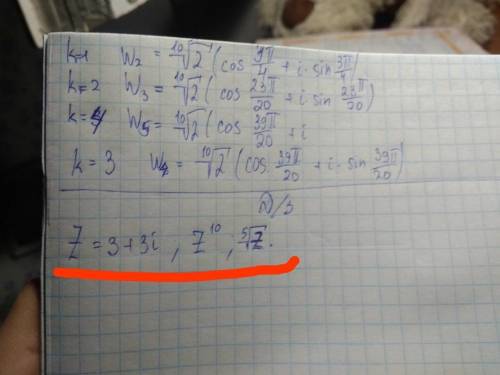 k=1 W₂ = ¹⁰√2 (cos 3π/4 + i·sin 3π/4)
k=2 W₃ = ¹⁰√2 (cos 23π/20 + i sin 23π/20)
k=4 W₅ = ¹⁰√2 (cos 39π/20 + i
k=3 W₄ = ¹⁰√2 (cos 39π/20 + i·sin 39π/20)
Z = 3+3i, Z¹⁰, ⁵√Z.